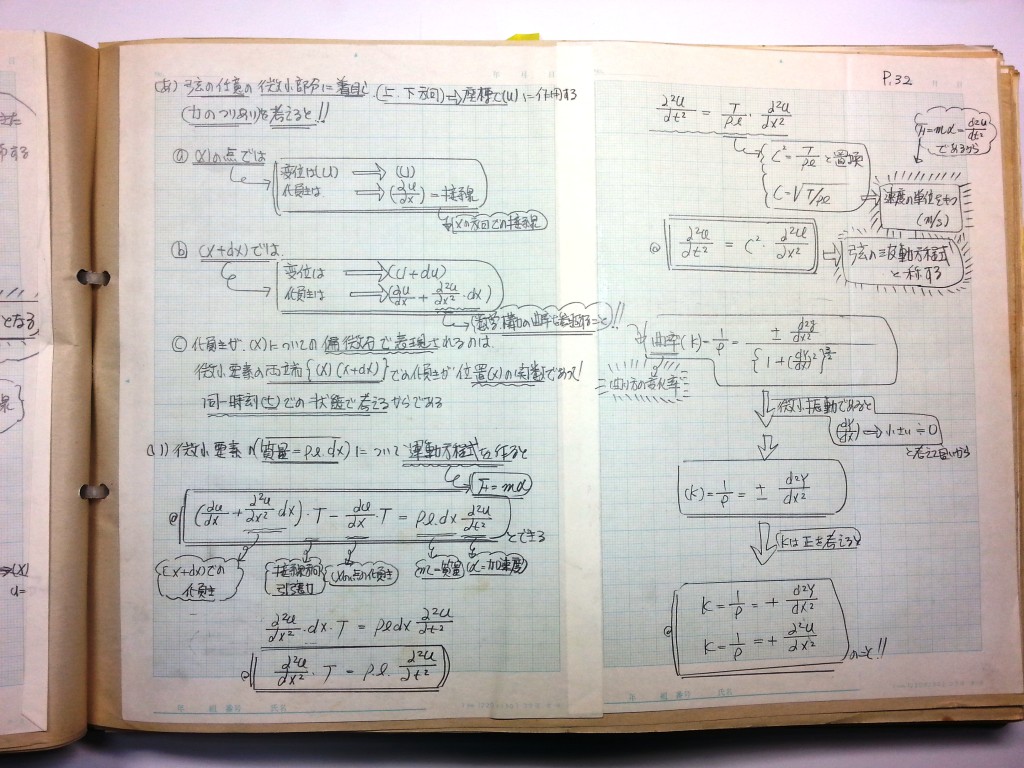 (あ) 弦の任意の微小部分に着目し (上、下方向)⇒座標で(u)に作用する
(力のつりあい)を考えると!!
ⓐ (x)の点では
変位は(u) ⇒ (u)
傾きは ⇒ (∂u/∂x) = 接線
(x)の方向での接線
ⓑ (x+dx)では、
変位は ⇒ (u+du)
傾きは ⇒ (∂u/∂x + ∂²u/∂x²・dx)
!!
ⓒ 傾きが、(x)についての偏微分で表現されるのは
微小要素の両端{(x)(x+dx)}での傾きが位置(x)の関数であって!
同一時刻(t)での状態で考えるからである
(1) 微小要素が(質量=ρℓ.dx)について運動方程式を作ると
F=mα
(∂u/∂x + ∂²u/∂x² dx)・T - ∂u/∂x・T = ρℓ.dx ∂²u/∂t² とできる
(x+dx)での傾き
接線方向引張力
(x)の点の傾き
m=質量
α=加速度
∂²u/∂x²・dx・T = ρℓdx ∂²u/∂t²
∂²u/∂x²・T = ρℓ・∂²u/∂t²
年 組 番号 氏名
P.32
∂²u/∂t² = T/ρℓ・∂²u/∂x²
F=mα=d²u/dt² であるから
C² = T/ρℓ と置換
C=√T/ρℓ
速度の単位をもつ (m/s)
∂²u/∂t² = C²・∂²u/∂x²
弦の振動方程式と称する
曲率(K)=1/ρ = ± d²y/dx² / {1+(dy/dx)²}^3/2
曲り方の変化率
微小振動であると
(dy/dx) ⇒ 小さい≒0
と考えて良いから
(K)=1/ρ = ± d²y/dx²
Kは正を考えると
K=1/ρ = + d²y/dx²
K=1/ρ = + ∂²u/∂x²
のこと!!
年 組 番号 氏名